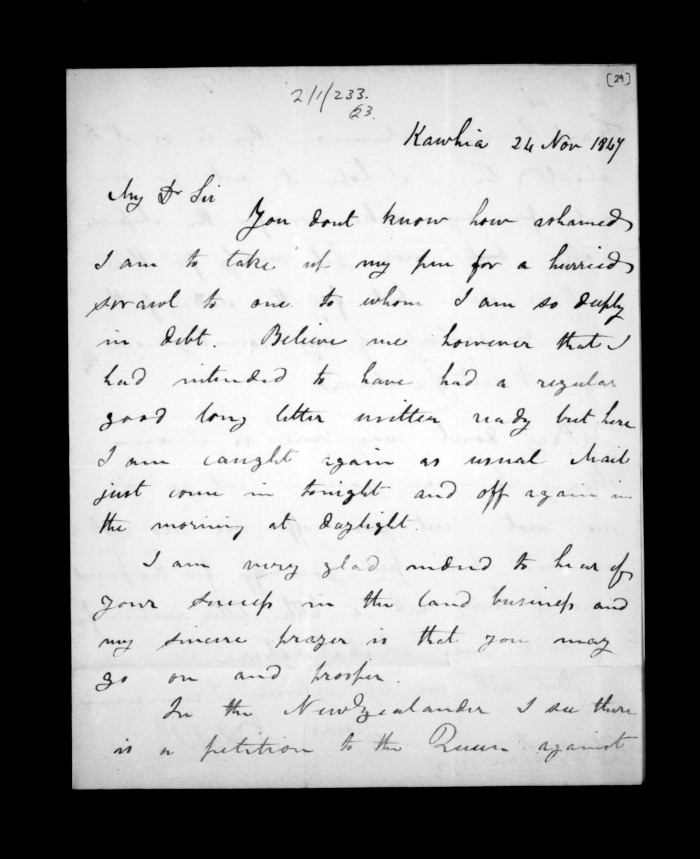 [29]
2/1/233.
63.
Kawhia 24 Nov 1847
My Dr Sir
You dont know how ashamed
I am to take up my pen for a hurried
scrawl to one to whom I am so deeply
in debt. Believe me however that I
had intended to have had a regular
good long letter written ready but here
I am caught again as usual Mail
just come in tonight and off again in
the morning at daylight.
I am very glad indeed to hear of
your success in the land business and
my sincere prayer is that you may
go on and prosper.
In the New Zealander I see there
is a petition to the Queen against